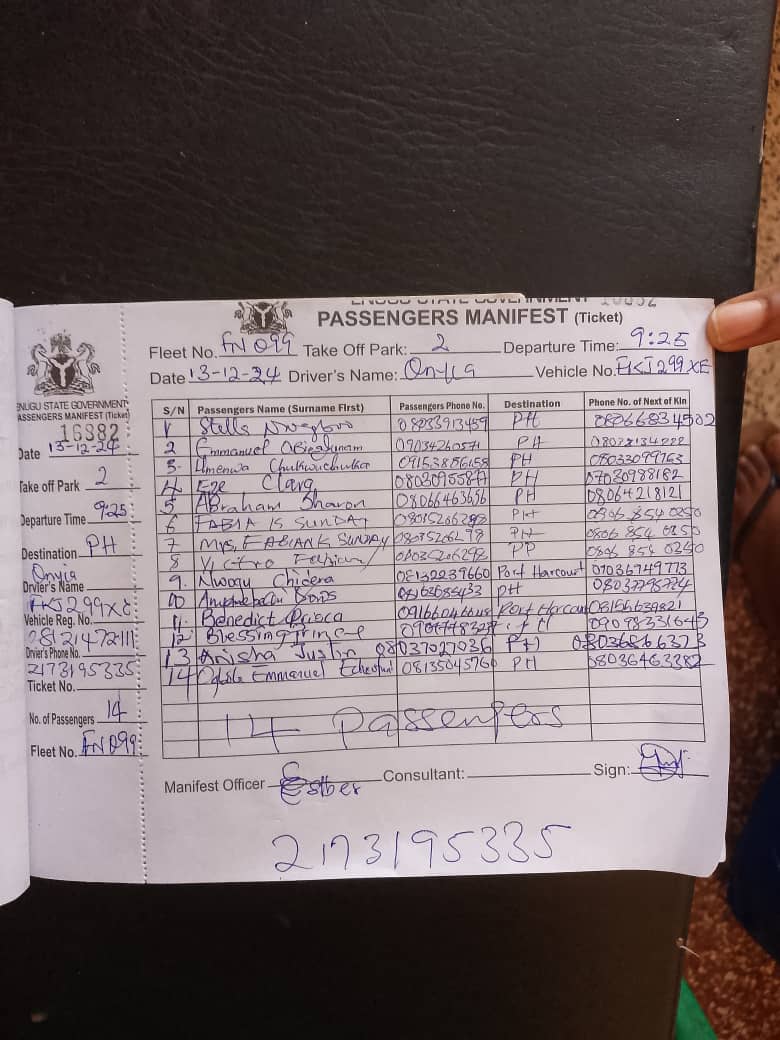 ENUGU STATE GOVERNMENT 16882
PASSENGERS MANIFEST (Ticket)
Fleet No. FN 099 Take Off Park: 2 Departure Time: 9:25
Date 13-12-24 Driver's Name: Onyia Vehicle No. FKJ299XE
S/N Passengers Name (Surname First) Passengers Phone No. Destination Phone No. of Next of Kin
1 Stella 08033913459 PH 08066834502
2 Emmanuel 09034260571 PH
3. Umenwa Chukwuchuka 09153856158 PH 08033099763
4 Eze Clara PH 07030988182
5 ABraham Sharon 08066463656 PH 08064218121
6 FABIAK SUNDAY PH 0806 854 0250
7 Mrs. FABIANK SUNDAY 08035206298 PH 0806 854 0250
8 PP 0806 854 0250
9. Nwogu Chidera 08132239660 Port Harcourt 07036749773
10 PH
11. Benedict Port Harcourt 08156639821
12 Blessing
13 Anisha Justin 08037027036 PH 08036866323
14 Emmanuel 08135045760 PH 08036463382
14 Passengers
Manifest Officer Esther Consultant: Sign:
2173195335
ENUGU STATE GOVERNMENT
PASSENGERS MANIFEST (Ticket)
16882
Date 13-12-24
Take off Park 2
Departure Time 9:25
Destination PH
Onyia
Driver's Name
FKJ299XE
Vehicle Reg. No.
08121472111
Driver's Phone No.
2173195335
Ticket No.
No. of Passengers 14
Fleet No. FN 099